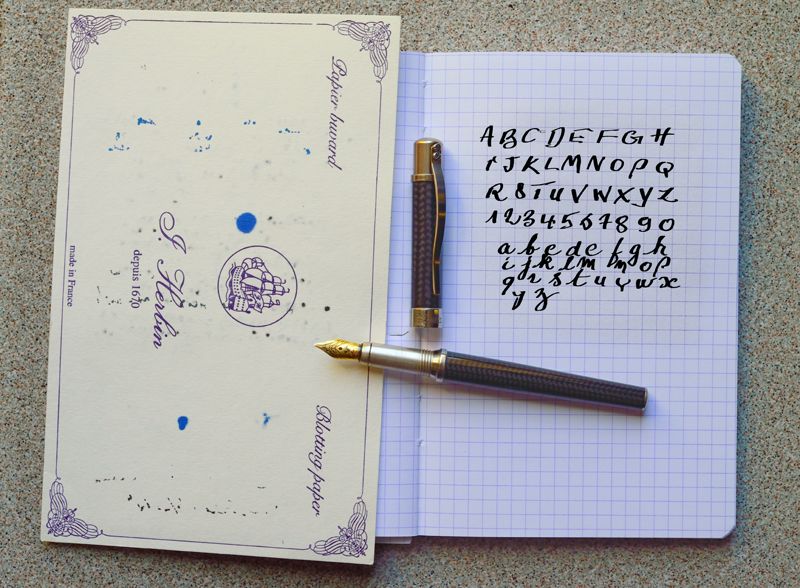 Papier buvard
J. Herbin
depuis 1670
made in France
Blotting paper
A B C D E F G H
I J K L M N O P Q
R S T U V W X Y Z
1 2 3 4 5 6 7 8 9 0
a b c d e f g h
i j k l m n o p
q r s t u v w x
y z